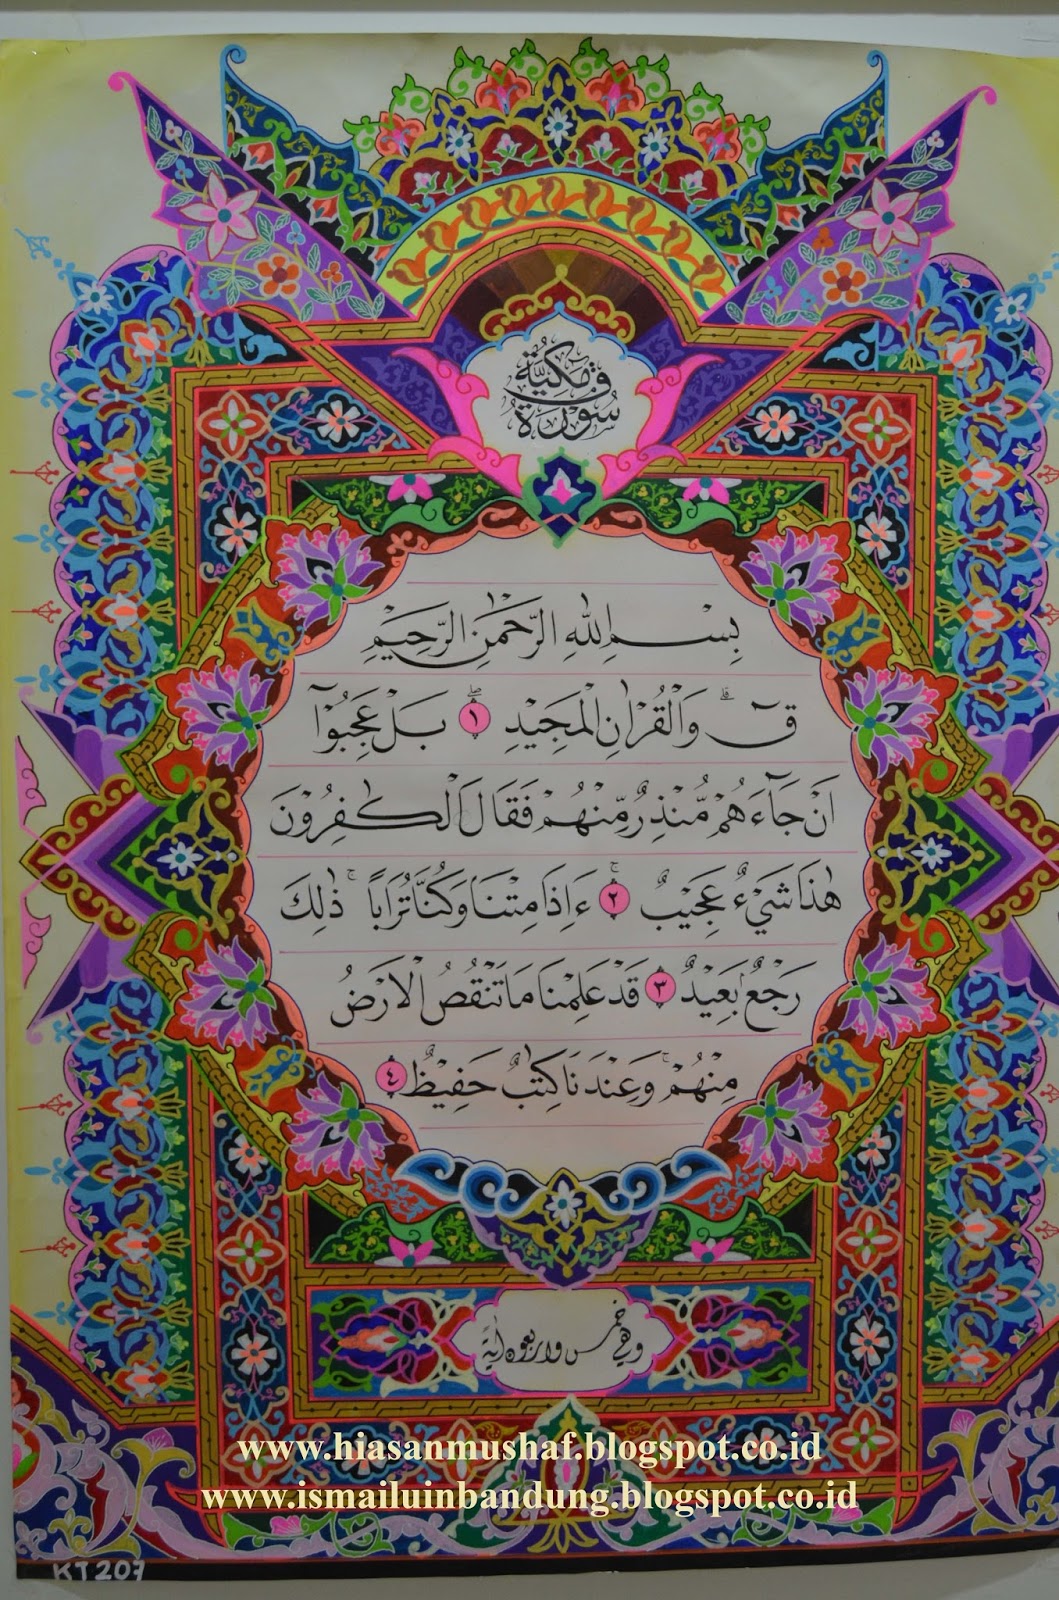 سُوْرَةُ قٓ مَكِّيَّةٌ
بِسْمِ اللّٰهِ الرَّحْمٰنِ الرَّحِيْمِ
قٓ ۗ وَالْقُرْاٰنِ الْمَجِيْدِ ۖ ١ بَلْ عَجِبُوْٓا
اَنْ جَاۤءَهُمْ مُّنْذِرٌ مِّنْهُمْ فَقَالَ الْكٰفِرُوْنَ
هٰذَا شَيْءٌ عَجِيْبٌ ۚ ٢ ءَاِذَا مِتْنَا وَكُنَّا تُرَابًا ۚ ذٰلِكَ
رَجْعٌۢ بَعِيْدٌ ٣ قَدْ عَلِمْنَا مَا تَنْقُصُ الْاَرْضُ
مِنْهُمْ ۚ وَعِنْدَنَا كِتٰبٌ حَفِيْظٌ ٤
وهي خمس واربعون اٰيةً
www.hiasanmushaf.blogspot.co.id
www.ismailuinbandung.blogspot.co.id
KT 207